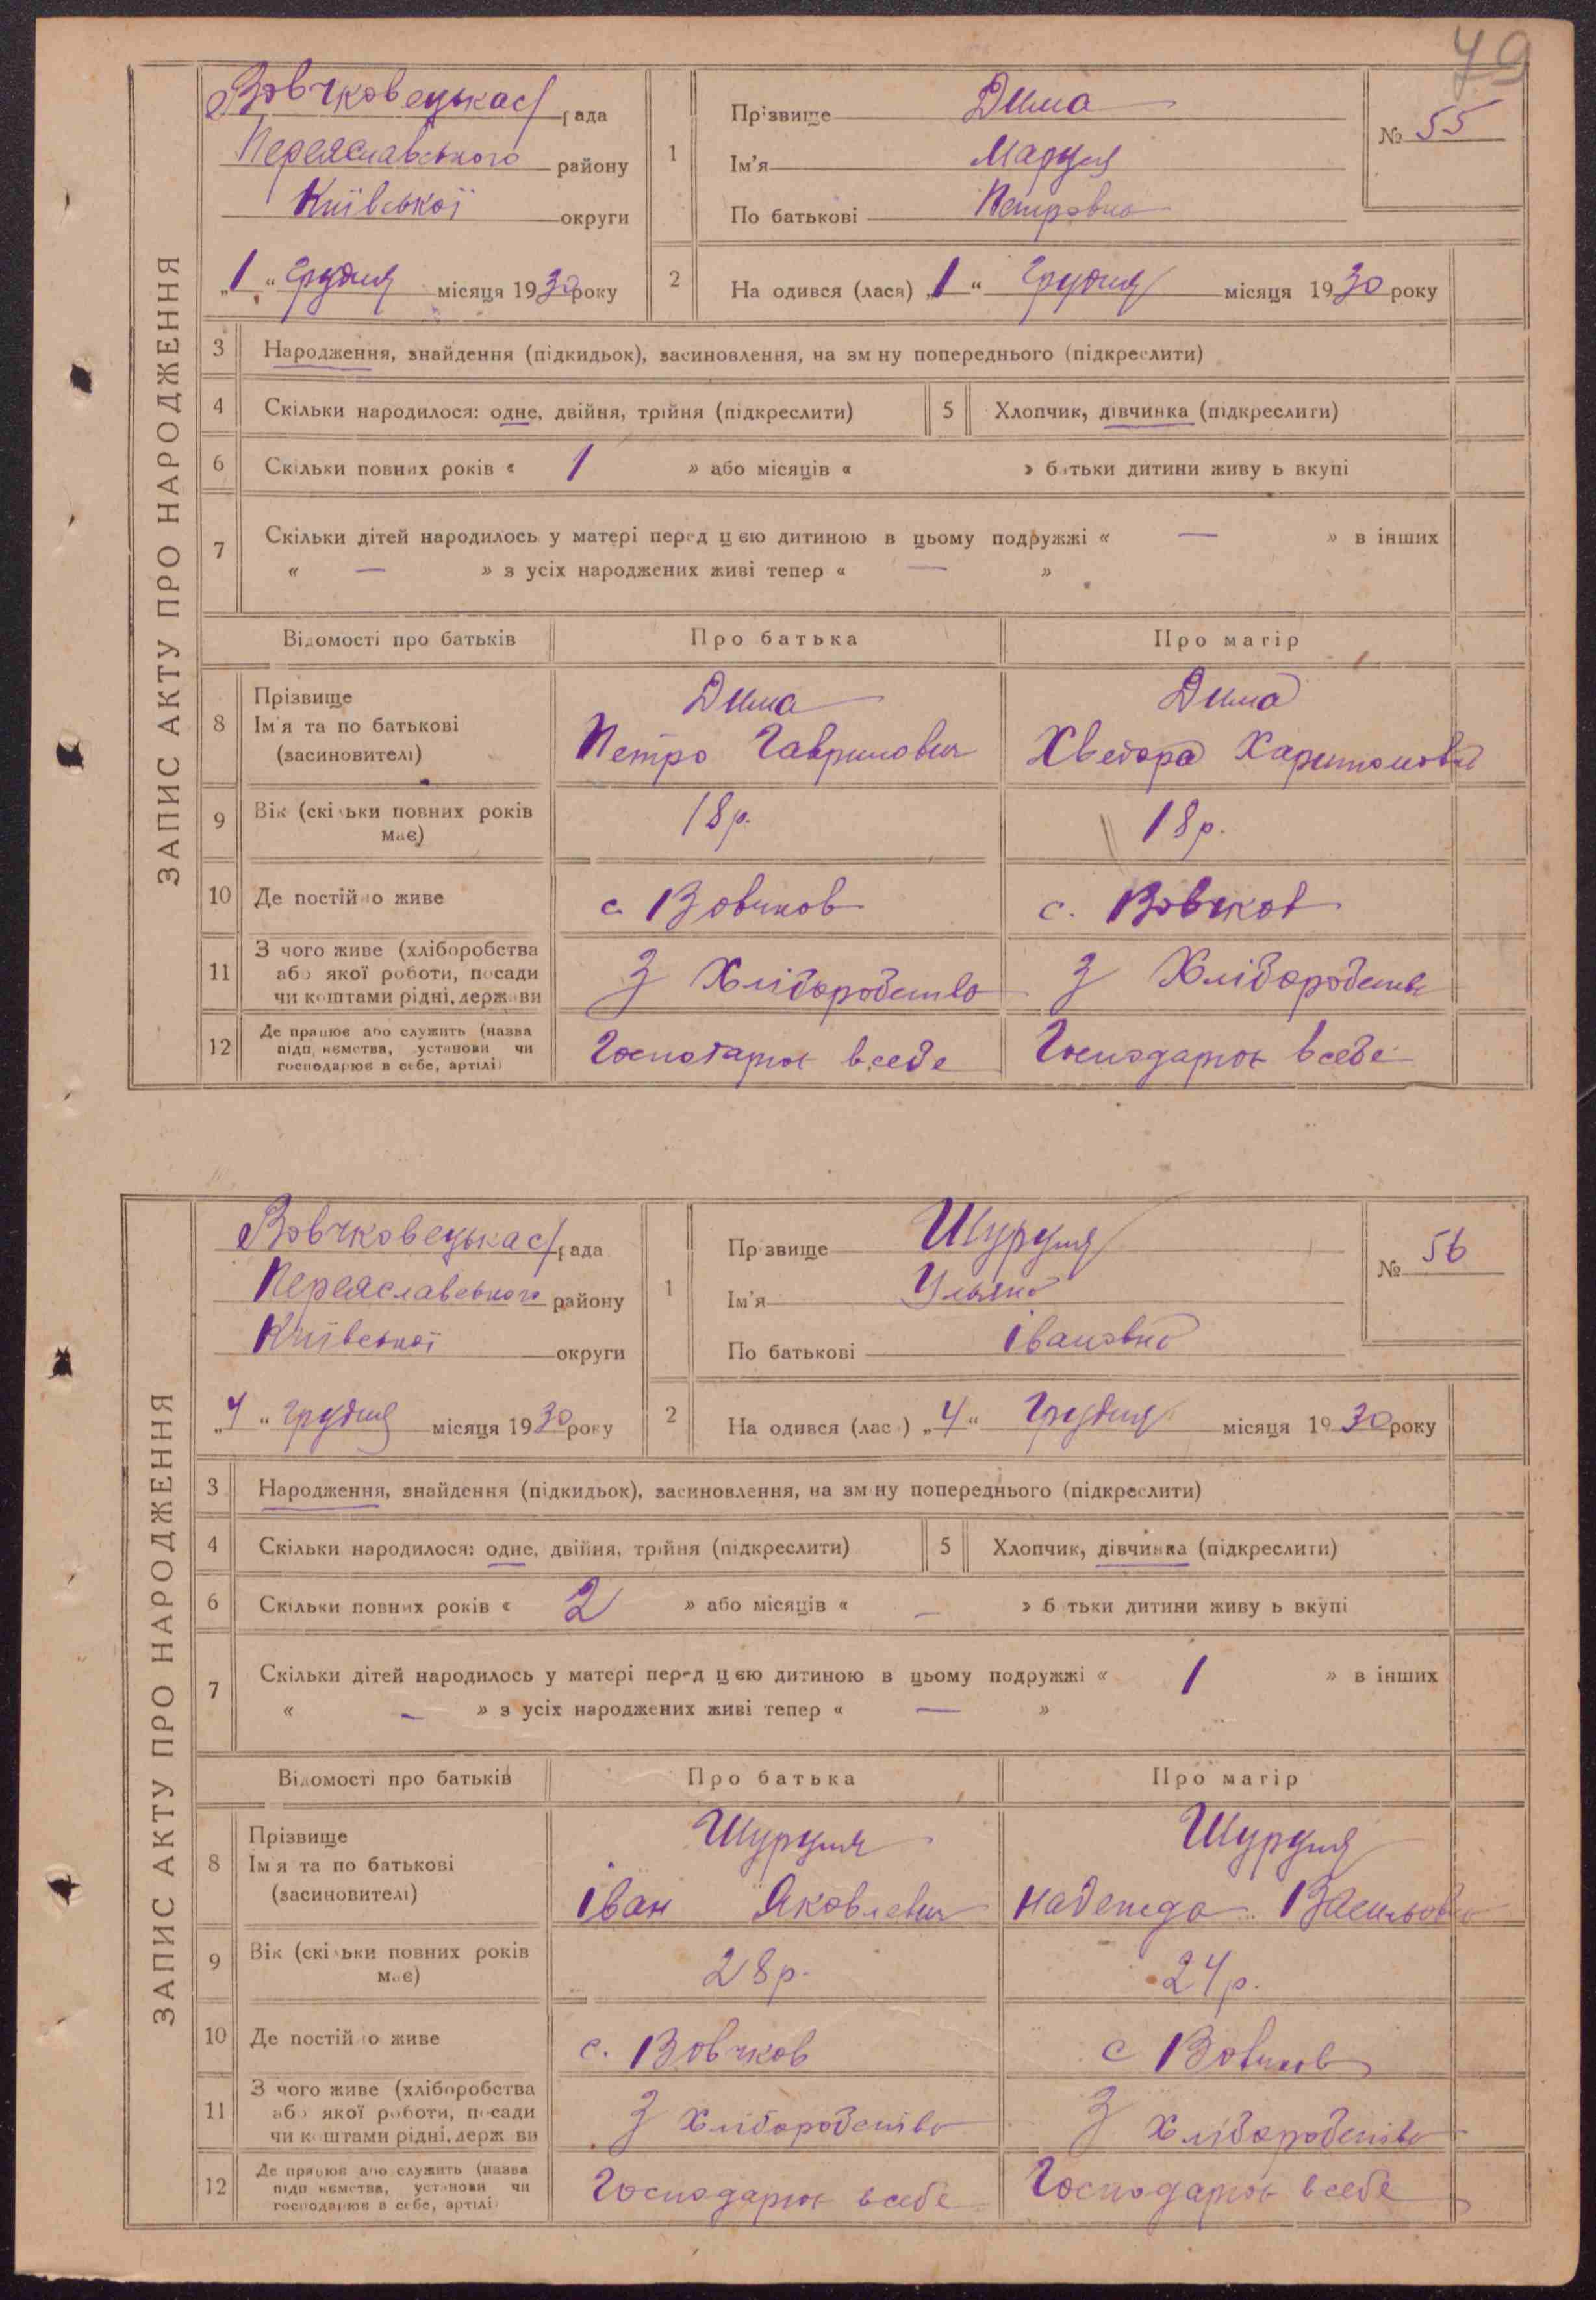 79
ЗАПИС АКТУ ПРО НАРОДЖЕННЯ
Вовчковецька с/рада
Переяславського району
Київської округи
„1“ грудня місяця 1930 року
1
Прізвище Дима
Ім'я Маруся
По батькові Петровна
№ 55
2
На одився (лася) „1“ Грудня місяця 1930 року
3 Народження, знайдення (підкидьок), засиновлення, на зм ну попереднього (підкреслити)
4 Скільки народилося: одне, двійня, трійня (підкреслити)
5 Хлопчик, дівчинка (підкреслити)
6 Скільки повних років « 1 » або місяців « » б тьки дитини живу ь вкупі
7 Скільки дітей народилось у матері перед ц єю дитиною в цьому подружжі « — » в інших
« — » з усіх народжених живі тепер « — »
Відомості про батьків Про батька Про матір
8 Прізвище Дима Дима
Ім'я та по батькові Петро Гаврилович Хведора Харитоновна
(засиновителі)
9 Вік (скільки повних років має) 18 р. 18 р.
10 Де постійно живе с. Вовчков с. Вовчков
11 З чого живе (хліборобства
або якої роботи, посади
чи коштами рідні, держави
З Хліборобство З Хліборобств
12 Де працює або служить (назва
підп иємства, установи чи
господарює в себе, артілі)
Господарює в себе Господарює в себе
ЗАПИС АКТУ ПРО НАРОДЖЕННЯ
Вовчковецька с/рада
Переяславського району
Київської округи
„4“ грудня місяця 1930 року
1
Пр звище Шуруля
Ім'я Уляна
По батькові Івановна
№ 56
2
На одився (лас ) „4“ Грудня місяця 1930 року
3 Народження, знайдення (підкидьок), засиновлення, на зм ну попереднього (підкреслити)
4 Скільки народилося: одне, двійня, трійня (підкреслити)
5 Хлопчик, дівчинка (підкреслити)
6 Скільки повних років « 2 » або місяців « — » б тьки дитини живу ь вкупі
7 Скільки дітей народилось у матері перед ц єю дитиною в цьому подружжі « 1 » в інших
« — » з усіх народжених живі тепер « — »
Відомості про батьків Про батька Про матір
8 Прізвище Шуруля Шуруля
Ім'я та по батькові Іван Яковлевич Надежда Васильовна
(засиновителі)
9 Вік (скільки повних років має) 28 р. 24 р.
10 Де постійно живе с. Вовчков с Вовчков
11 З чого живе (хліборобства
або якої роботи, посади
чи коштами рідні, держ ви
З хліборобство З хліборобство
12 Де працює або служить (назва
підп иємства, установи чи
господарює в себе, артілі)
Господарює в себе Господарює в себе